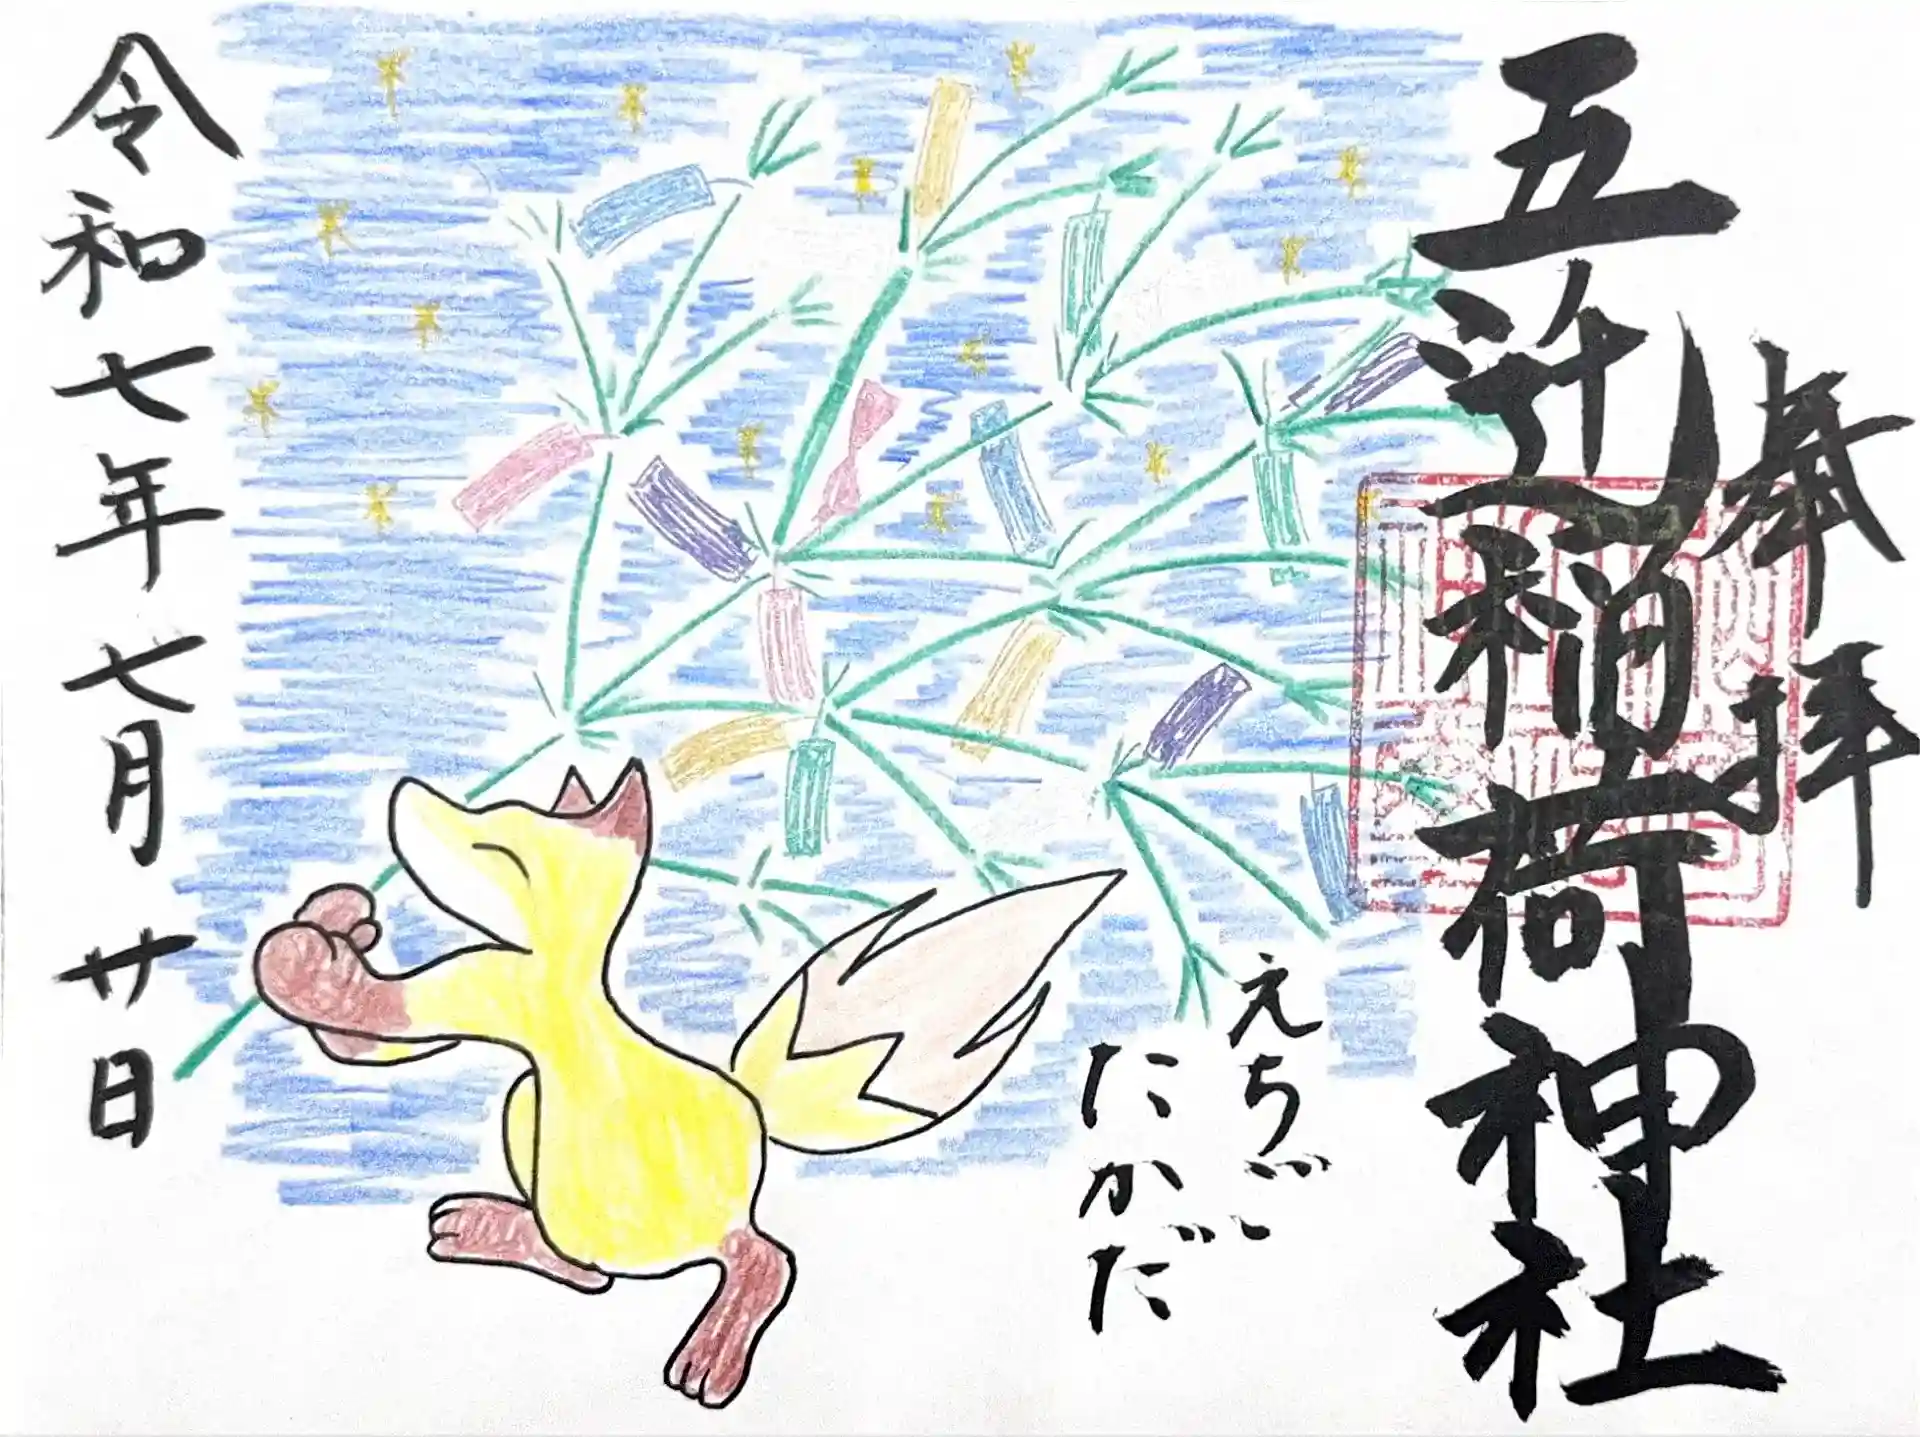 奉拝
五稲荷神社
えちご
たかだ
令和七年七月廿日